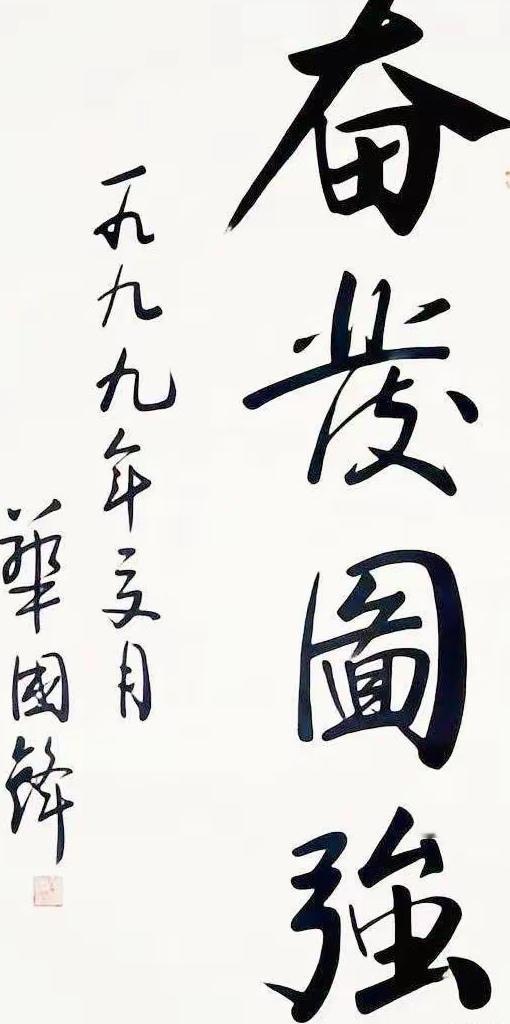 奋發圖強
一九九九年夏月
華國鋒